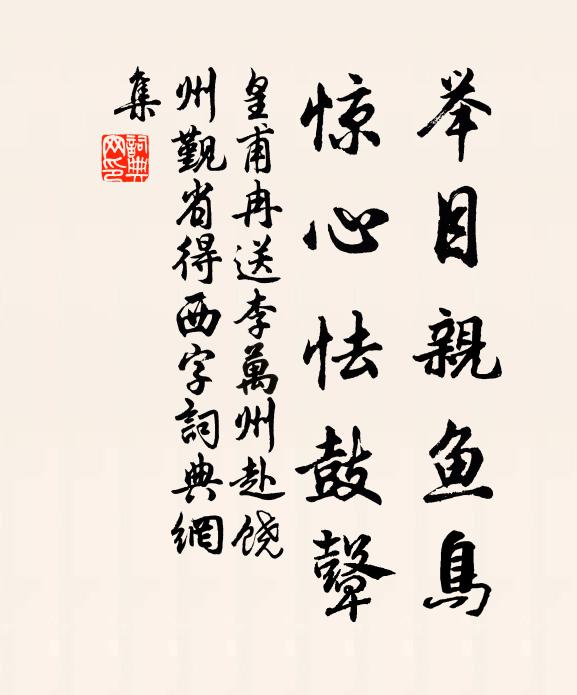 举目親鱼鳥
惊心怯鼓鼙
皇甫冉送李萬州赴饶
州覲省得西字詞典網
集
詞典网印